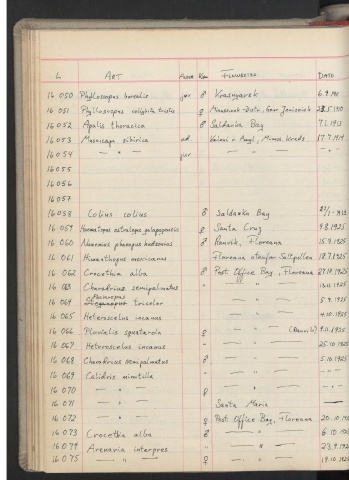 L ART ALDER KØN FINDESTED DATO
16 050 Phylloscopus borealis juv ♂ Krasnyarsk
16 051 Phylloscopus collybita tristis ♀
16 052 Apalis thoracica ♂ Saldanha Bay 7.1.1913
16 053 Muscicapa sibirica ad. 17.7.1914
16 054 — " — juv
16 055
16 056
16 057
16 058 Colius colius ♂ Saldanha Bay
16 059 Haematopus ostralegus galapagensis ♀ Santa Cruz 9.8.1925
16 060 Numenius phaeopus hudsonius ♂ Floreana 15.9.1925
16 061 Himanthopus mexicanus Floreana Saltpullen 18.7.1925
16 062 Crocethia alba ♂ Post Office Bay, Floreana 27.10.1925
16 063 Charadrius semipalmatus " 13.11.1925
16 064 Phalaropus tricolor — " — 5.9.1925
16 065 Heteroscelus incanus — " — 4.10.1925
16 066 Pluvialis squatarola ♀ — " — 9.11.1925
16 067 Heteroscelus incanus — " — 25.10.1925
16 068 Charadrius semipalmatus ♂ — " — 5.10.1925
16 069 Calidris minutilla — " — — " —
16 070 — " — ♀ — " —
16 071 — " — Santa Maria —
16 072 — " — ♀ Post Office Bay, Floreana
16 073 Crocethia alba ♂ — " —
16 074 Arenaria interpres — " —
16 075 — " — ♀ — " —